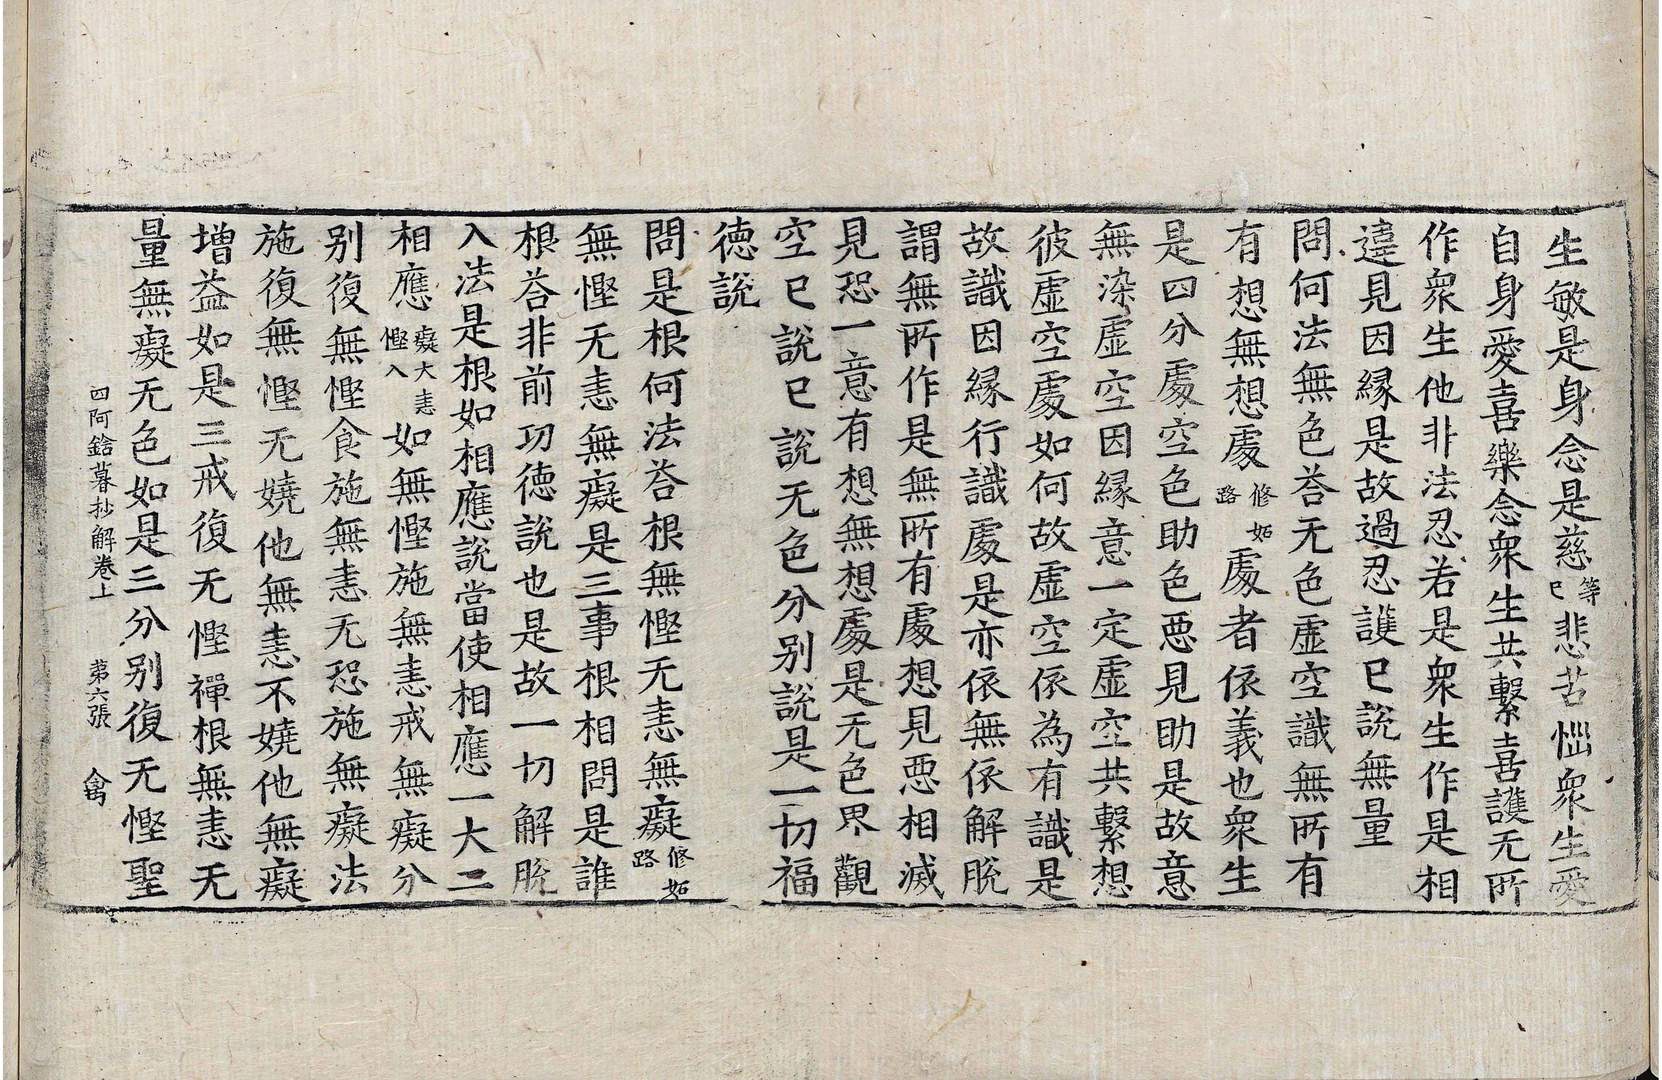 生敏是身念是慈等已悲苦惱衆生愛
自身愛喜樂念衆生共繫喜護无所
作衆生他非法忍若是衆生作是相
違見因緣是故過忍護已說無量
問何法無色荅无色虛空識無所有
有想無想處修妬路處者依義也衆生
是四分處空色助色惡見助是故意
無染虛空因緣意一定虛空共繫想
彼虛空處如何故虛空依為有識是
故識因緣行識處是亦依無依解脫
謂無所作是無所有處想見惡相滅
見恐一意有想無想處是无色界觀
空已說已說无色分别說是一切福
德說
問是根何法荅根無慳无恚無癡修妬路
無慳无恚無癡是三事根相問是誰
根荅非前功德說也是故一切解脫
入法是根如相應說當使相應一大二
相應癡大恚慳入如無慳施無恚戒無癡分
别復無慳食施無恚无恐施無癡法
施復無慳无嬈他無恚不嬈他無癡
增益如是三戒復无慳禪根無恚无
量無癡无色如是三分别復无慳聖
四阿鋡暮抄解卷上 第六張 禽